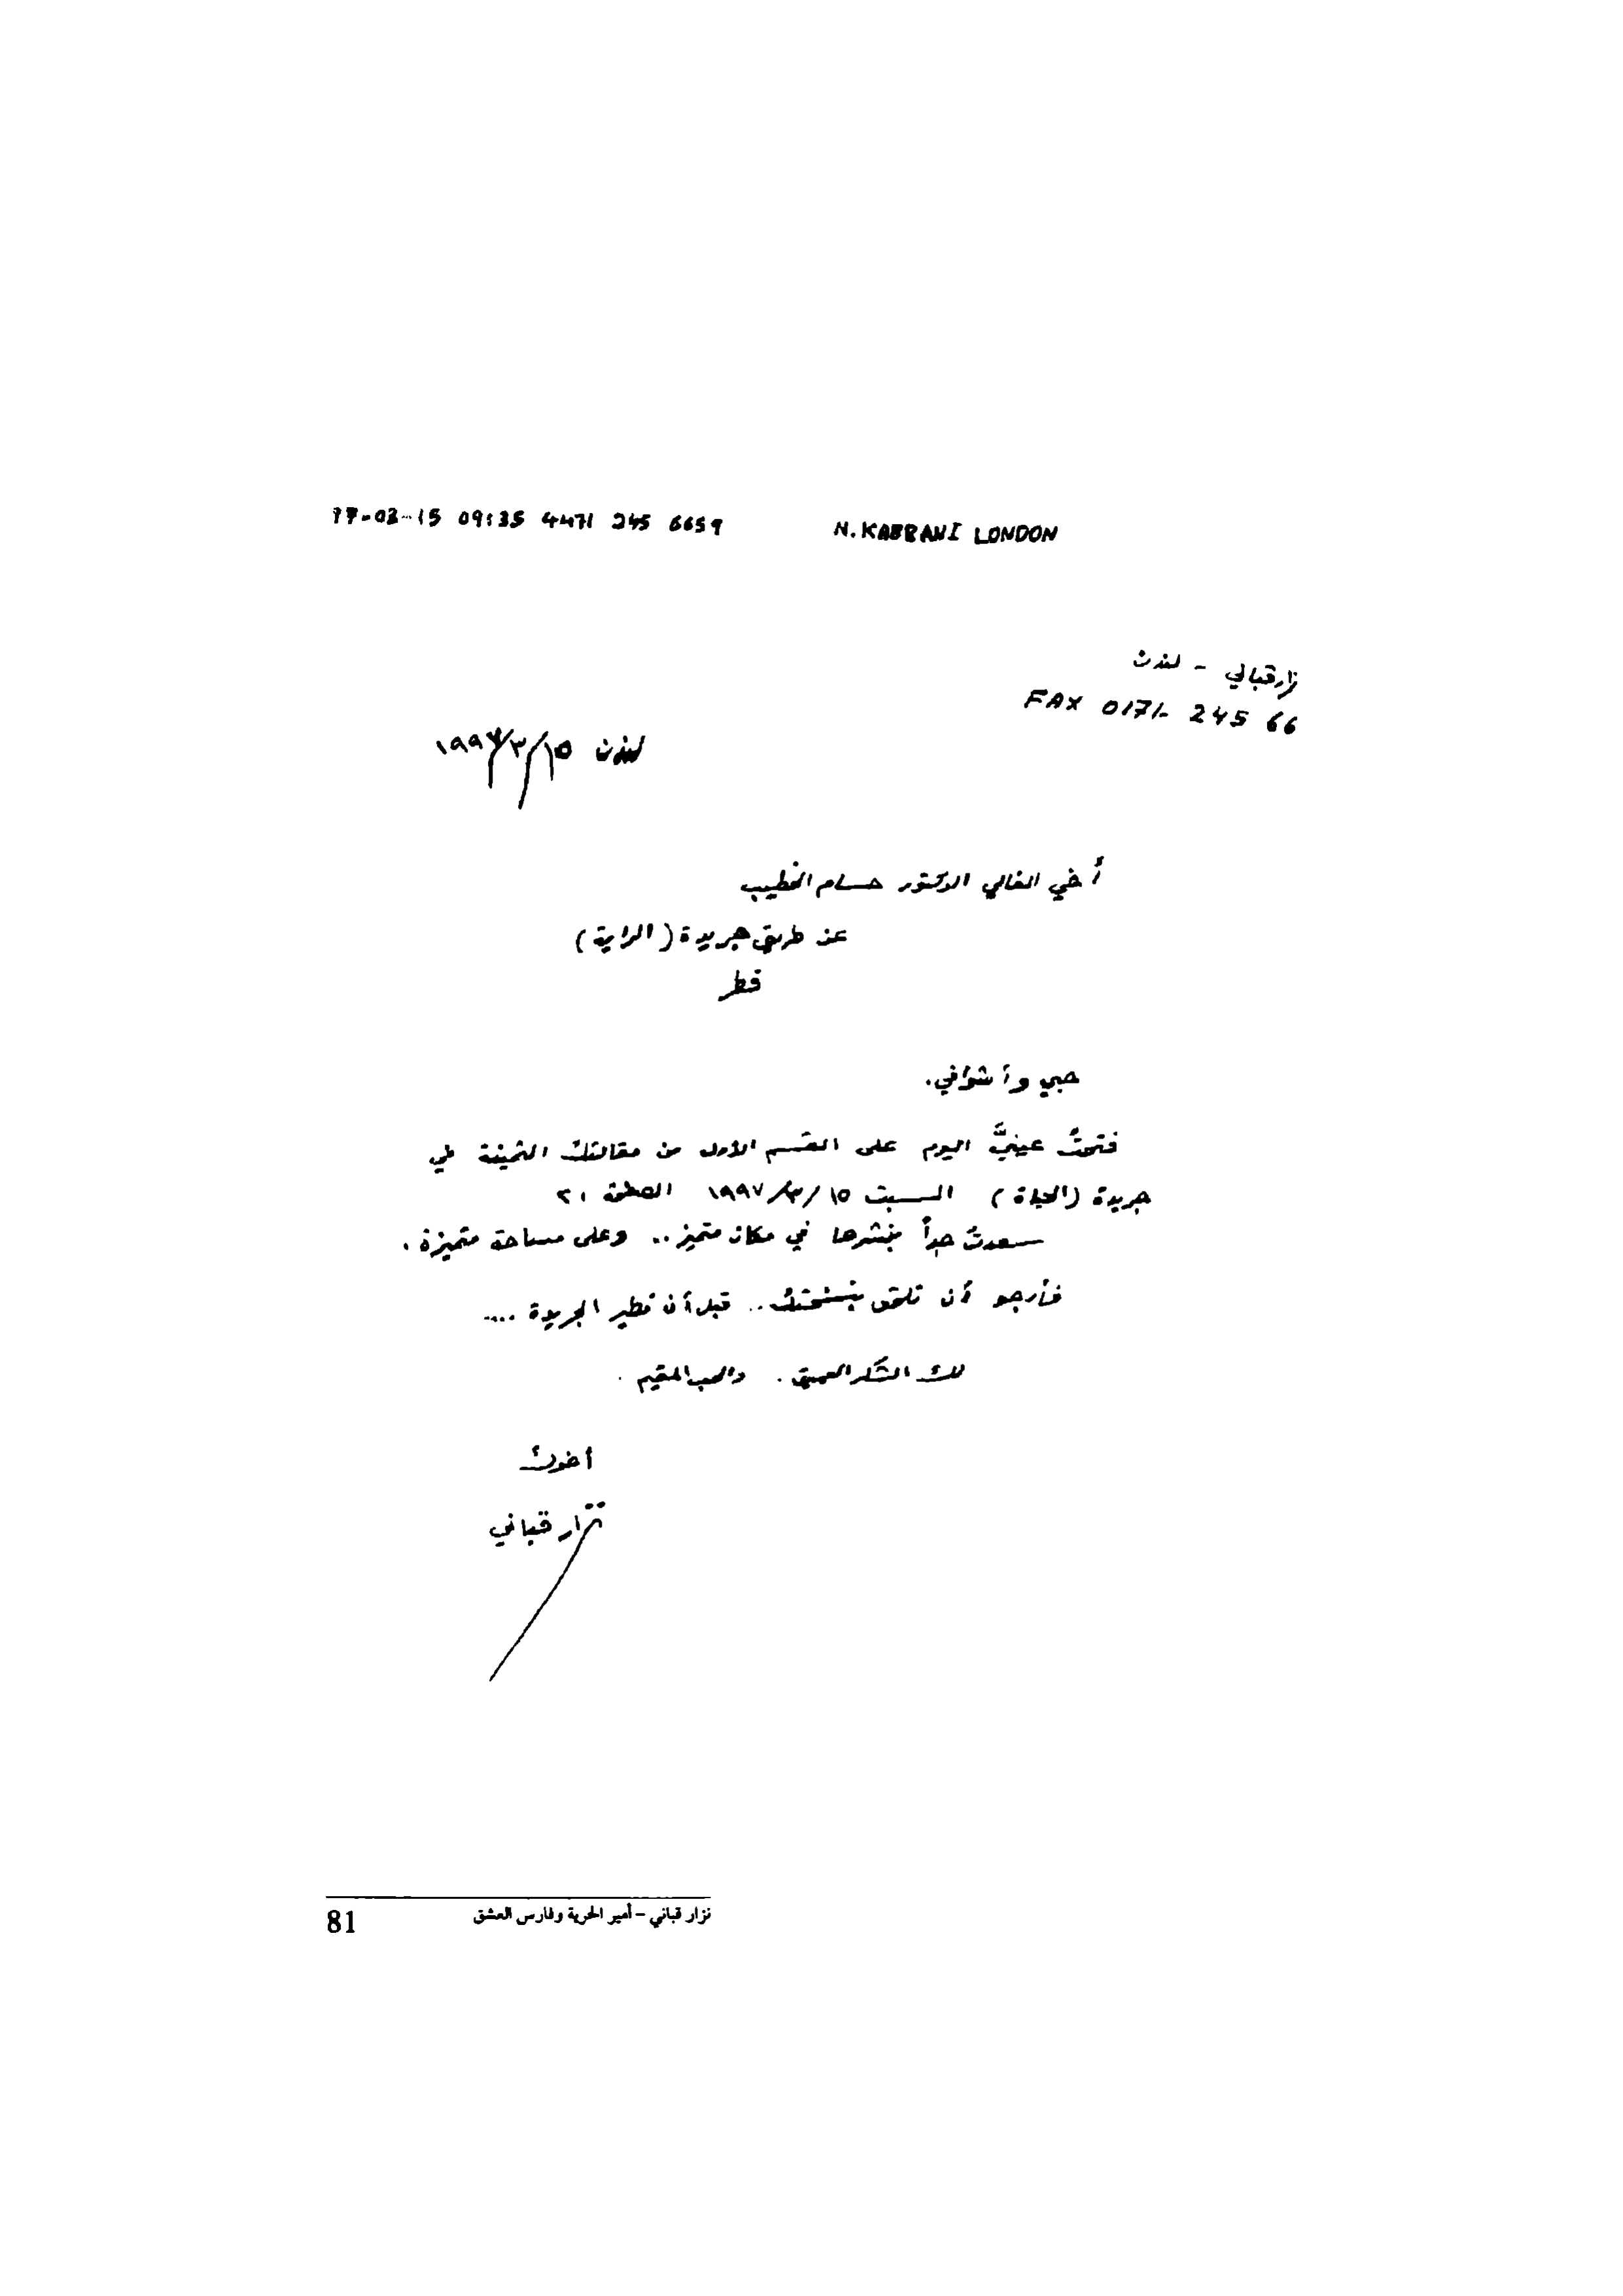 97-03-15 09:35 4471 245 6659 N. KABBANI LONDON
نزار قباني - لندن
FAX 0171- 245 66
لندن ١٥/٣/١٩٩٧
أخي الغالي الدكتور حسام الخطيب
عن طريق جريدة (الراية)
قطر
حبي وأشواقي.
فتحتُ عينيَّ اليوم على القسم الأول من مقالتك الثمينة في
جريدة (الحياة) السبت ١٥/٣/١٩٩٧ الصفحة ٢١
سعدتُ جداً بنشرها في مكان متميز.. وعلى مساحة متميزة.
فأرجو أن تلحق بنسختك.. قبل أن تطير الجريدة ....
لك الشكر العميق. والحب المقيم.
أخوك
نزار قباني
نزار قباني - أمير الحرية وفارس العشق 81